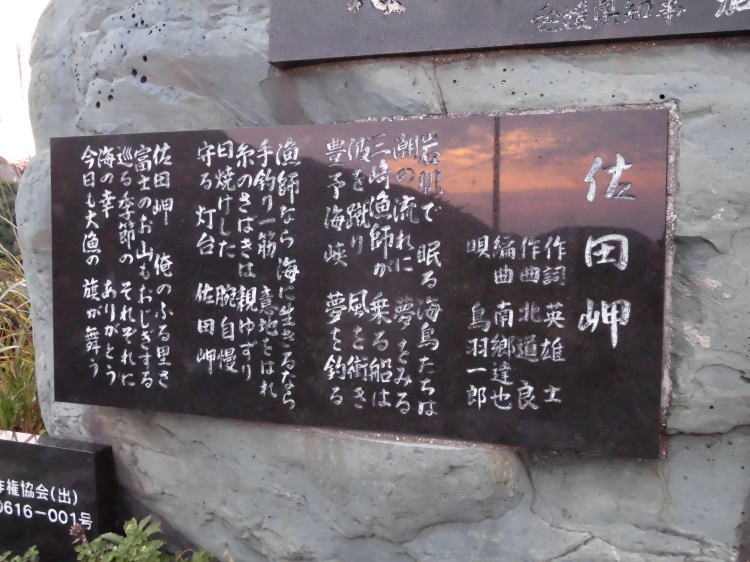 愛媛県知事
佐田岬
作詞 英雄士
作曲 北道 良
編曲 南郷達也
唄 鳥羽一郎
岩肌で 眠る海鳥たちは
潮の流れに 夢をみる
三崎漁師が 乗る船は
波を蹴り 風を衝き
豊予海峡 夢を釣る
漁師なら 海に生きるなら
手釣り一筋 意地をはれ
糸のさばきは 親ゆずり
日焼けした 腕自慢
守る灯台 佐田岬
佐田岬 俺のふる里さ
富士のお山もおじぎする
巡る季節の それぞれに
海の幸 ありがとう
今日も大漁の 旗が舞う
作権協会(出)
0616-001号